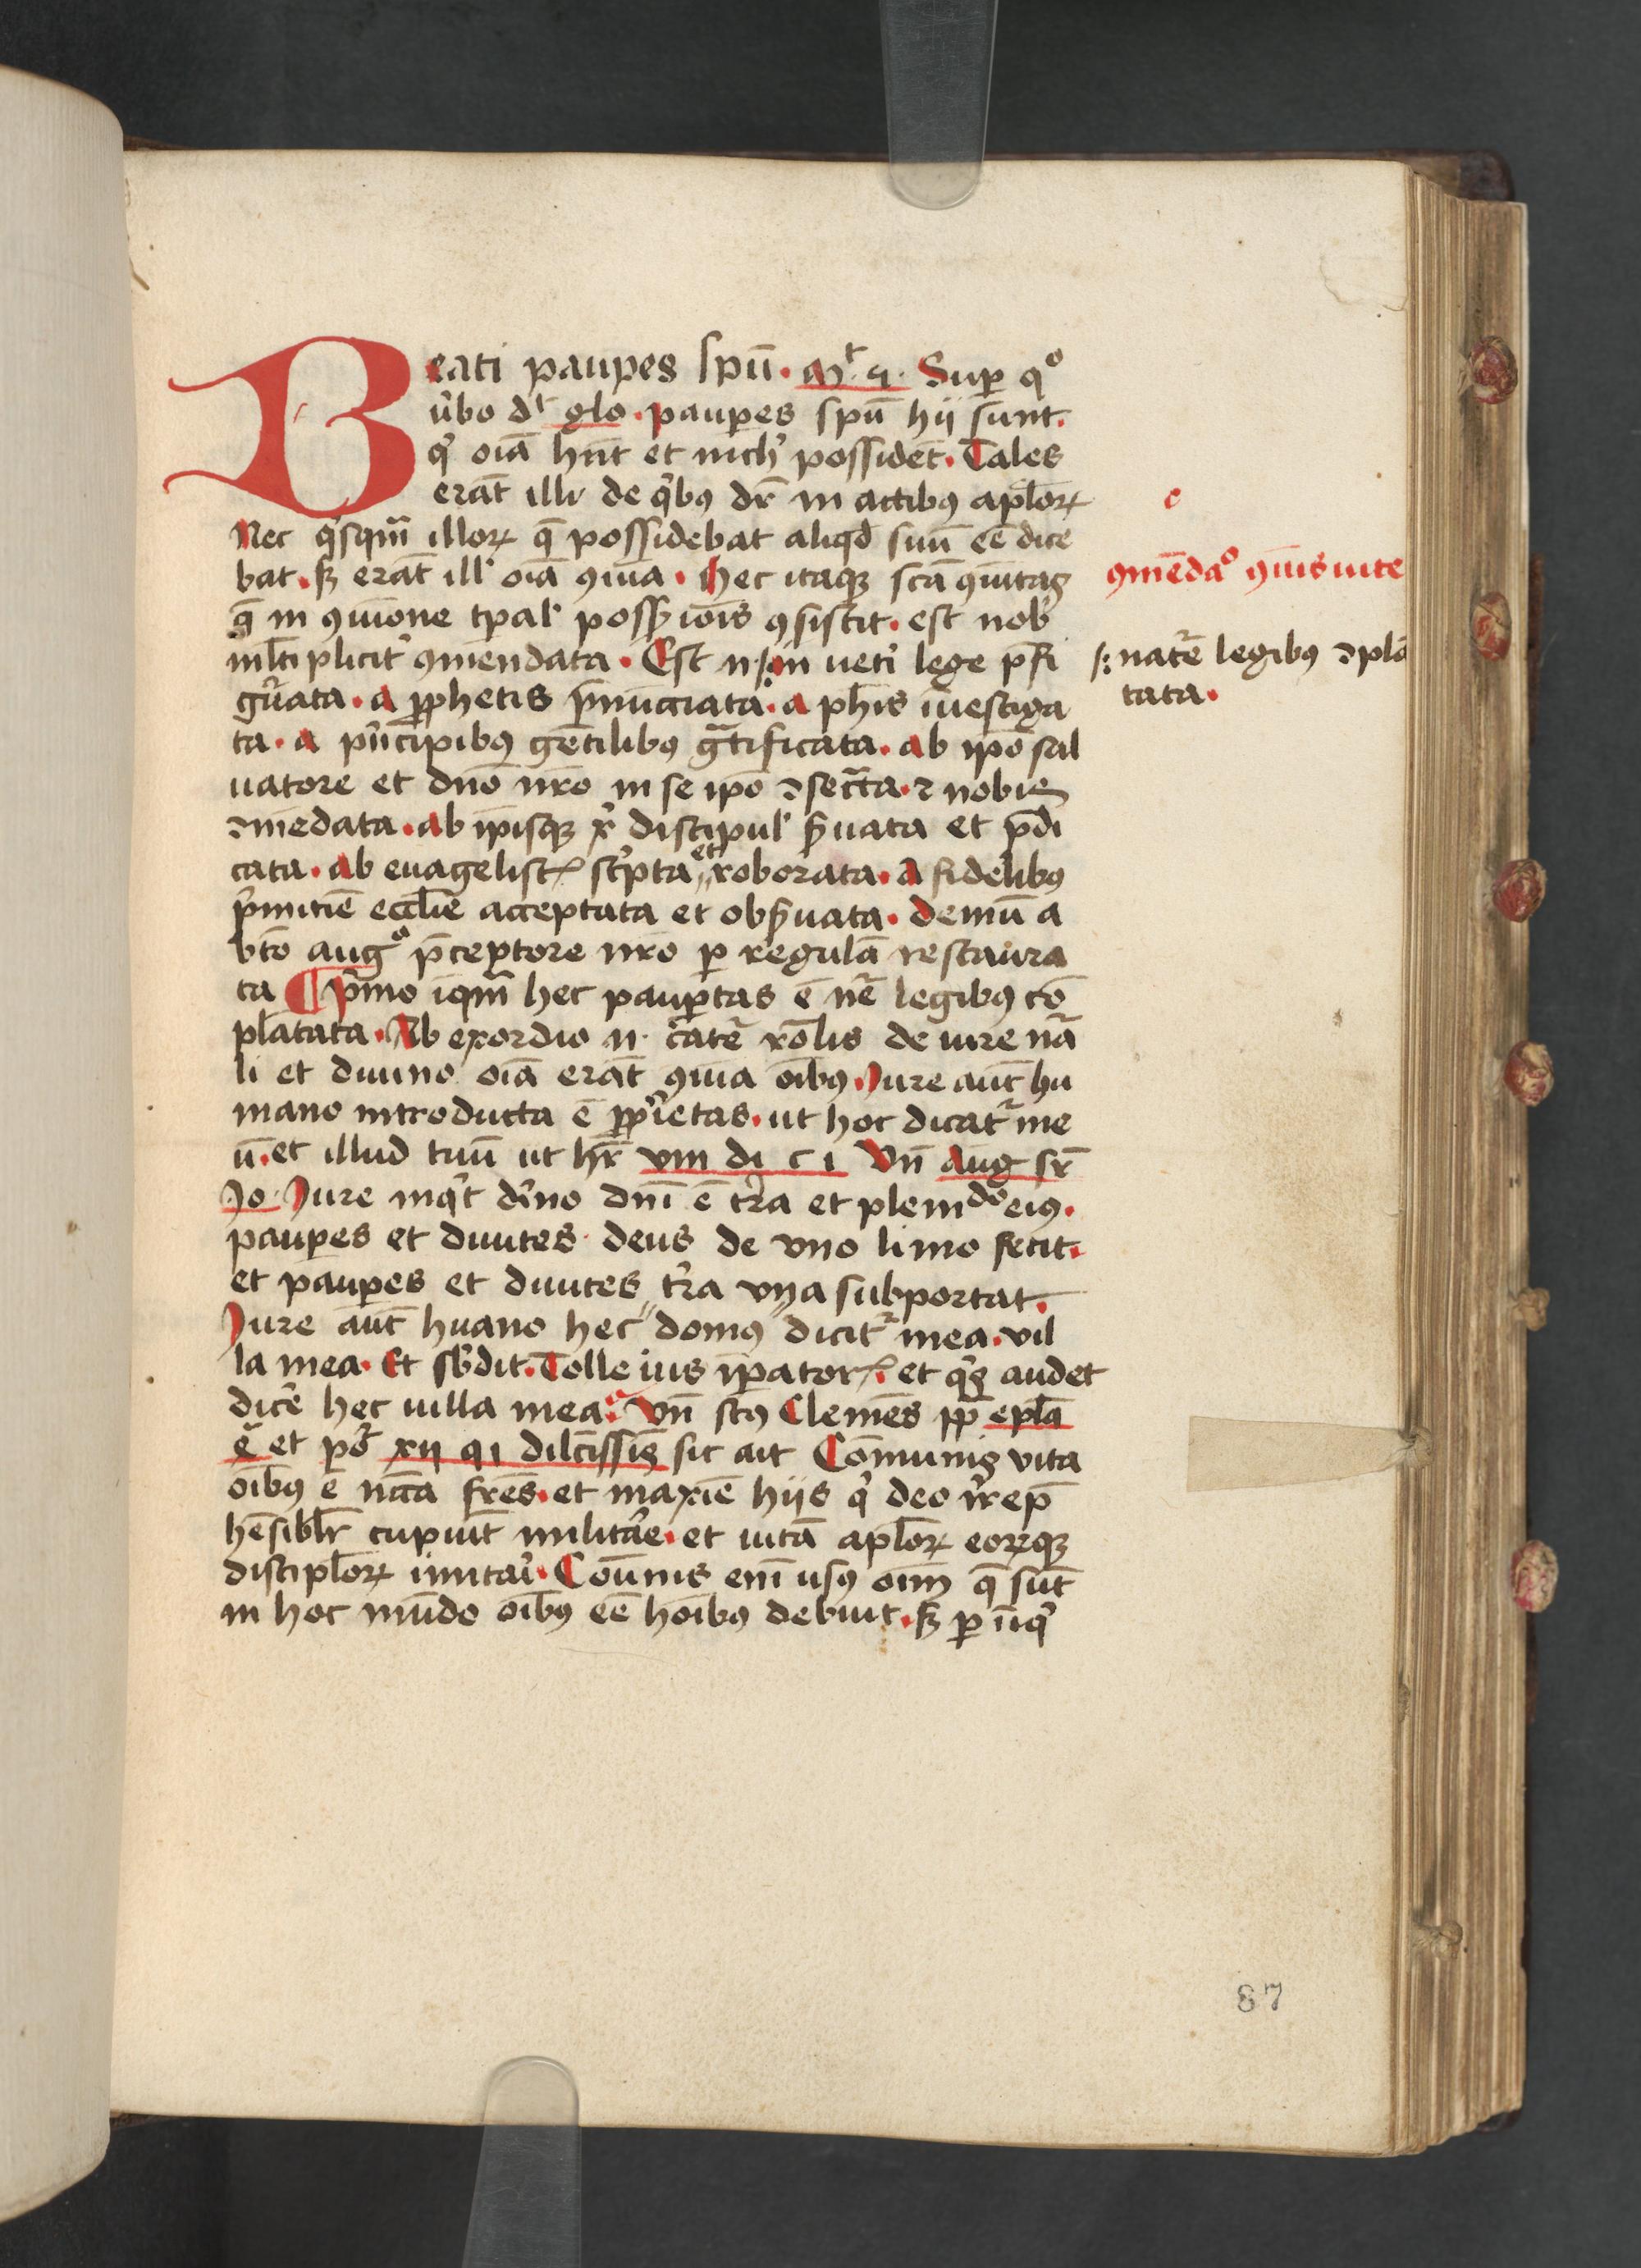 Beati paup̱es spū. Mͭ. 5. Sup̱ qͦ
v̾bo dͬ glo. paup̱es spū hij sunt.
qͥ oīa hn̄t et nichˡ possidēt. Tales
erāt illi de qͥbꝰ dr̄ in actibꝰ apl̄oꝝ
Nec qͥsqͣm illoꝝ q̄ possidebat aliqd̄ suū eē dice
bat. sꝫ erāt illˡ oīa ꝯīūa. Hec itaqꝫ scā ꝯīta₃
q̄ in ꝯīone tp̄alˡ possſioīs ꝯsistit. est nobˡ
ml̄tiplicit̾ ꝯmendata. Est n. in vetˡ lege p̄fi
gͮata. a ꝓphetis p̄nūctiata. a ph̄is īuestiga
ta. a pͥncipibꝰ gētilibꝰ gͣtificata. ab ip̄o sal
uatore et dn̄o nr̄o in se ip̄o ꝯsecͣta. ⁊ nobis
ꝯmēdata. ab ip̄isqꝫ xͥ discipulˡ s̾uata et p̄di
cata. ab euāgelistꝭ scͥpta et roborata. A fidelibꝰ
pͥmitiē eccl̄ie acceptata et obs̾uata. demū a
bt̄o augͦ p̄ceptore nr̄o p̱ regulā restaura
ta ¶ pͥmo īqͣm hec paup̱tas ē nͤ legibꝰ cō
plātata. Ab exordio n. cͣatͤ rōlis de iure nͣa
li et diuino oīa erāt ꝯīūa oībꝰ. Jure aūt hu
mano introducta ē ꝓpͥetas. ut hoc dicatͬ me
ū. et illud tuū ut hr̄ viii di c i Vn̄ Aug sr̄
Jo. Jure inqͥt diͥno dn̄i ē tr̾a et pleniͩͦ eiꝰ.
paup̱es et diuites deus de vno limo fecit.
et paup̱es et diuites tr̾a vna subportat.
Jure aūt huano hec domꝰ dicitͬ mea. vil
la mea. Et sb̾dit. Tolle ius īp̱atorꝭ. et qͥs audet
dicͤe hec villa mea. Vn̄ sctꝰ Clemēs pp̄ epl̄a
ē et poͬ xij q i dilcīssīs sic ait Cōmunis vita
oībꝰ ē nc̄ia fr̄es. et maxīe hijs qͥ deo ir̾rep̄
hēsiblr̄ cupiūt militaͬe. et vitā apl̄oꝝ eoꝝqꝫ
discipl̄oꝝ imitaͬi. Coūnis enī vsꝰ oīm q̄ sūt
in hoc mūdo oībꝰ eē hoībꝰ debuit. sꝫ p̱ iniqͥ
e
ꝯmēdaͦ ꝯīs uite
natͤ legibꝰ ꝯplā
tata.
87